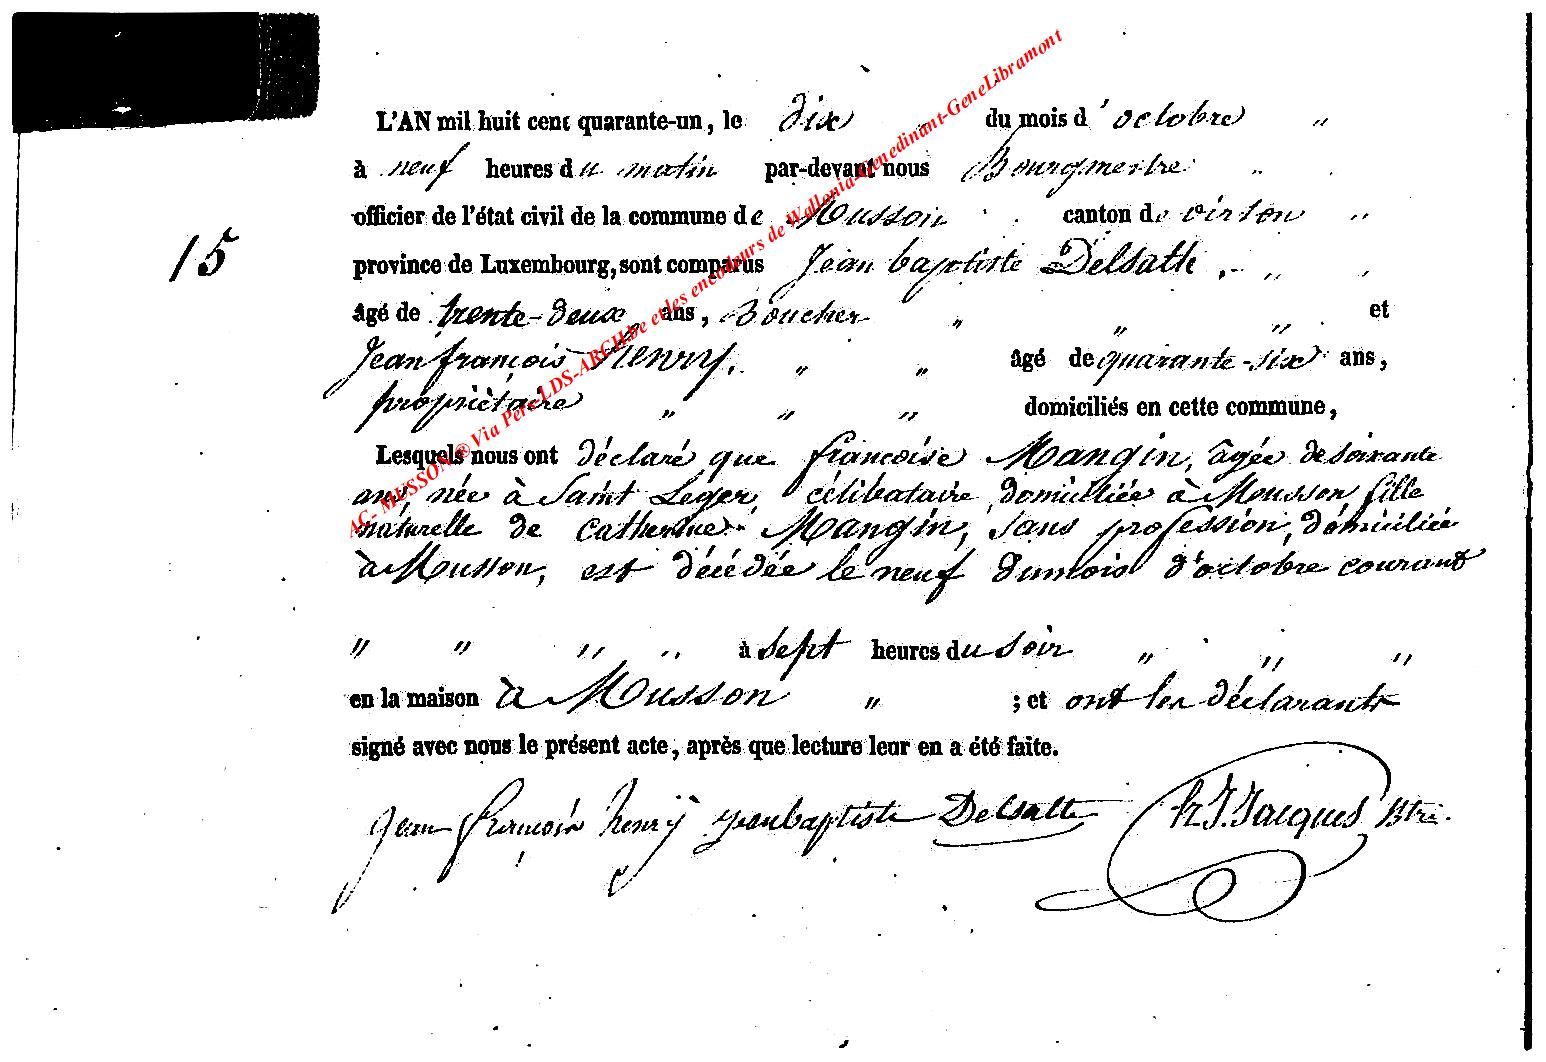 L'AN mil huit cent quarante-un, le dix " du mois d'octobre "
à neuf heures du matin par-devant nous Bourgmestre "
officier de l'état civil de la commune de Musson " canton de virton "
15
province de Luxembourg, sont comparus Jean baptiste Delsatte, " "
âgé de trente-deux ans, Boucher " " " et
Jean françois Henry, " " âgé de quarante-six ans,
propriètaire " " " domiciliés en cette commune,
Lesquels nous ont déclaré que françoise Mangin, agée de soixante
ans, née à Saint Léger, célibataire, domiciliée à Musson, fille
naturelle de Catherine Mangin, sans profession, domiciliée
à Musson, est décédée le neuf du mois d'octobre courant
" " " " à sept heures du soir " " "
en la maison à Musson " ; et ont les déclarants
signé avec nous le présent acte, après que lecture leur en a été faite.
Jean françois henry Jean baptiste Delsatte Jacques Btre.
AC- MUSSON® Via Pere-LDS-ARCH.be et les encodeurs de Wallonia-Genedinant-GeneLibramont